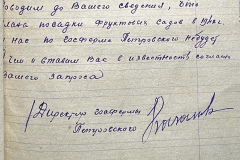 оводим до Вашего сведения, что
лана посадки фруктовых садов в
нас по госферма Петровского небудет
чем и ставим Вас в известность согласно
вашего запроса
Директор госфермы
Петровского